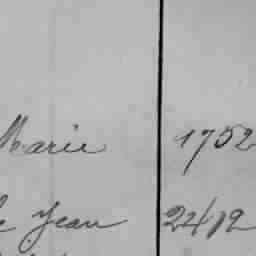 Marie 1752
Jean 2412